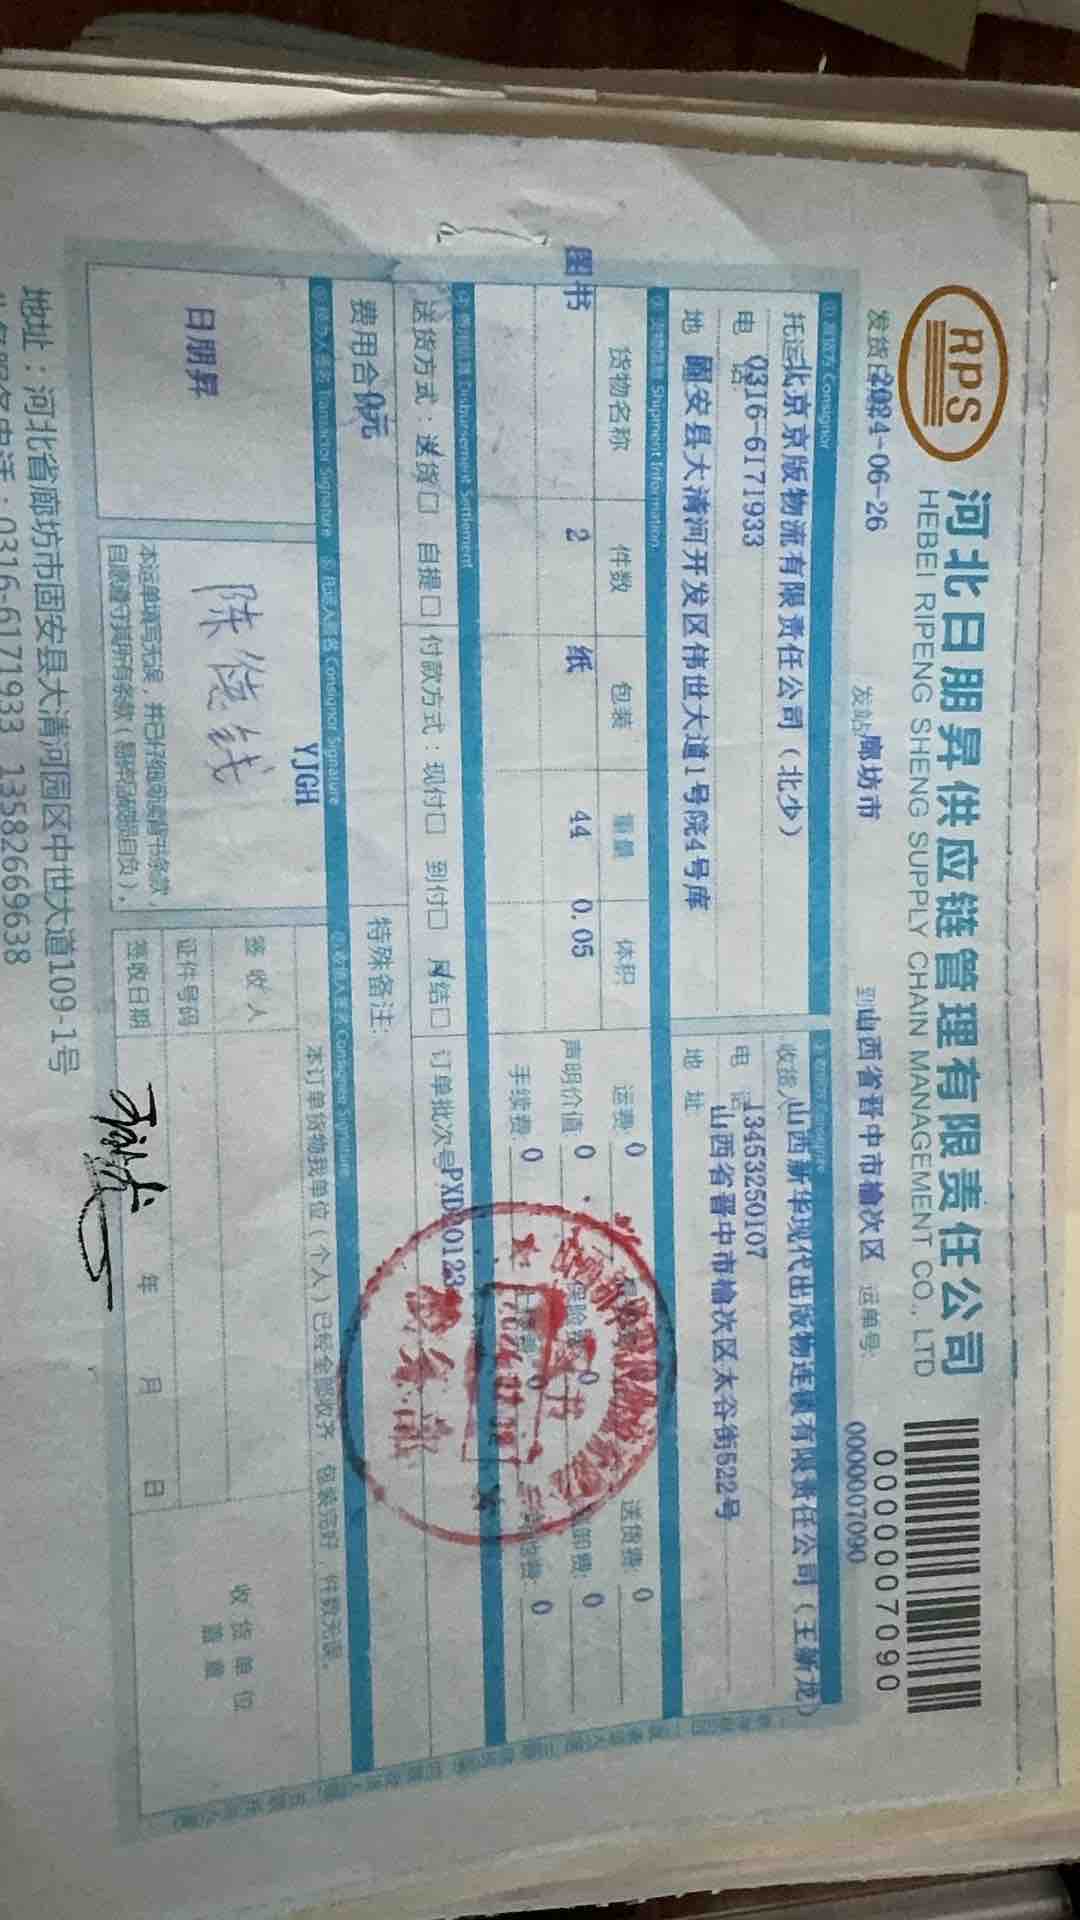 RPS
河北日朋昇供应链管理有限责任公司
HEBEI RIPENG SHENG SUPPLY CHAIN MANAGEMENT CO., LTD
0000007090
发货日 2024-06-26 发站 廊坊市 到 山西省晋中市榆次区 运单号: 0000007090
① 发货方 Consignor
托运 北京京版物流有限责任公司（北少）
电 话 0316-6171933
地 固安县大清河开发区伟世大道1号院4号库
收货人 山西新华现代出版物连锁有限责任公司（王新龙）
电 话 13453250107
地 址 山西省晋中市榆次区太谷街522号
Shipment Information
货物名称 件数 包装 重量 体积 运费: 0 送货费: 0
图书 2 纸 44 0.05 声明价值: 0 保险费: 0 装卸费: 0
手续费: 0 0 0
Disbursement Settlement
送货方式：送货□ 自提□ 付款方式：现付□ 到付□ 月结□ 订单批次号 PXD00123
费用合 0元 特殊备注:
Transactor Signature Consignor Signature Consignee Signature
YJGH
日朋昇
本订单货物我单位（个人）已经全部收齐，包装完好，件数无误。
签 收 人
证件号码
签收日期 年 月 日
收 货 单 位
盖 章
本运单填写无误，并已仔细阅读背书条款，
自愿遵守其所有条款（易碎品破损自负）。
地址：河北省廊坊市固安县大清河园区中世大道109-1号
0316-6171933 13582669638